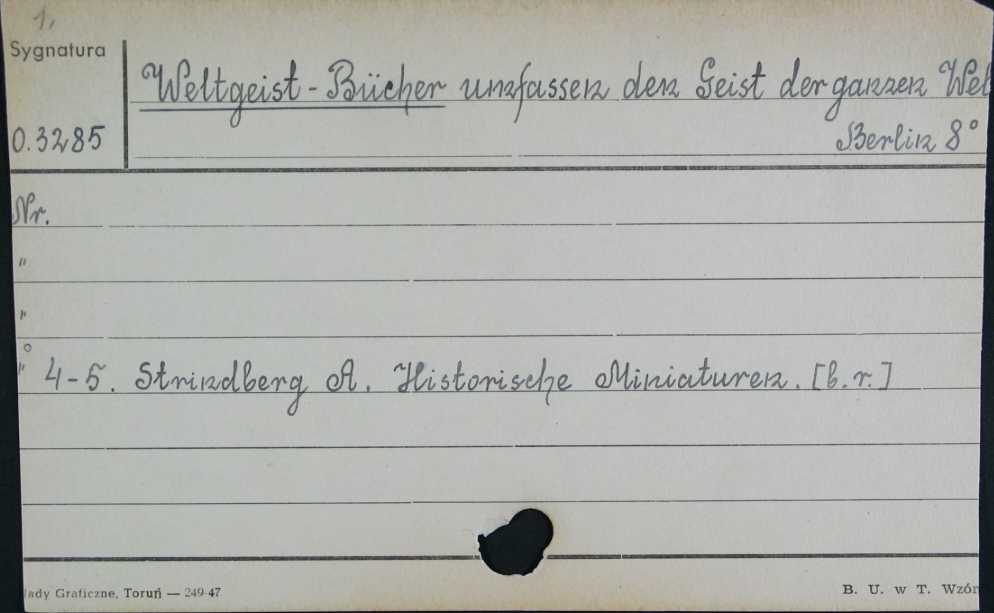 1,
Sygnatura
Weltgeist-Bücher umfassen den Geist der ganzen Wel
0.3285
Berlin 8°
Nr.
"
"
" 4-5. Strindberg A. Historische Miniaturen. [b.r.]
ady Graficzne, Toruń — 249-47
B. U. w T. Wzór